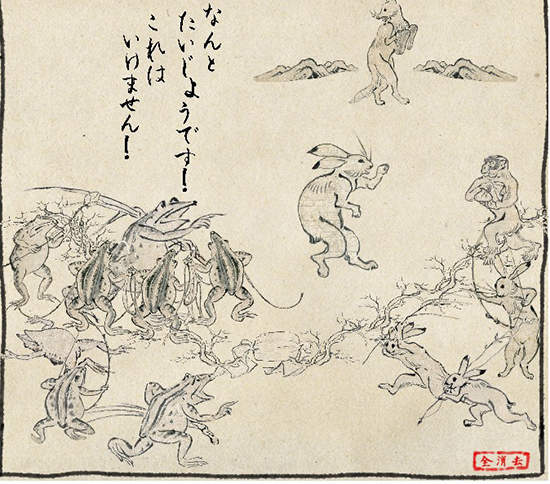 なんと
たいじようです!
これは
いけません!
全消去